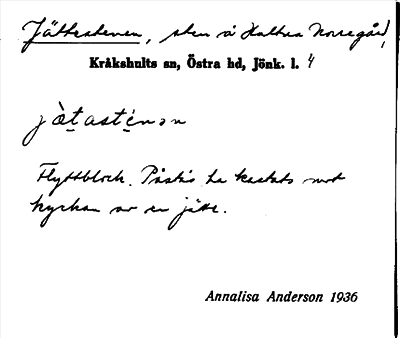 Jättestenen, sten å Hultna Norregård,
Kråkshults sn, Östra hd, Jönk. l. 4
jàtasténən
Flyttblock. Påstås ha kastats mot
kyrkan av en jätte.
Annalisa Anderson 1936